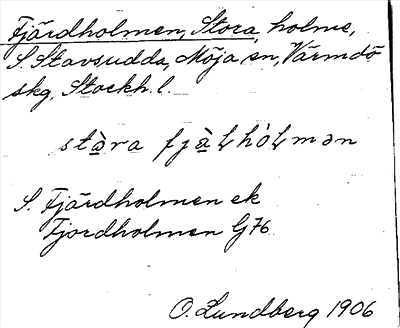 Fjärdholmen, Stora, holme,
S. Stavsudda, Möja sn, Värmdö
skg, Stockh. l.
stò̱ra fjà̱ɭhòɭmən
S. Fjärdholmen ek
Fjordholmen G76
O. Lundberg 1906